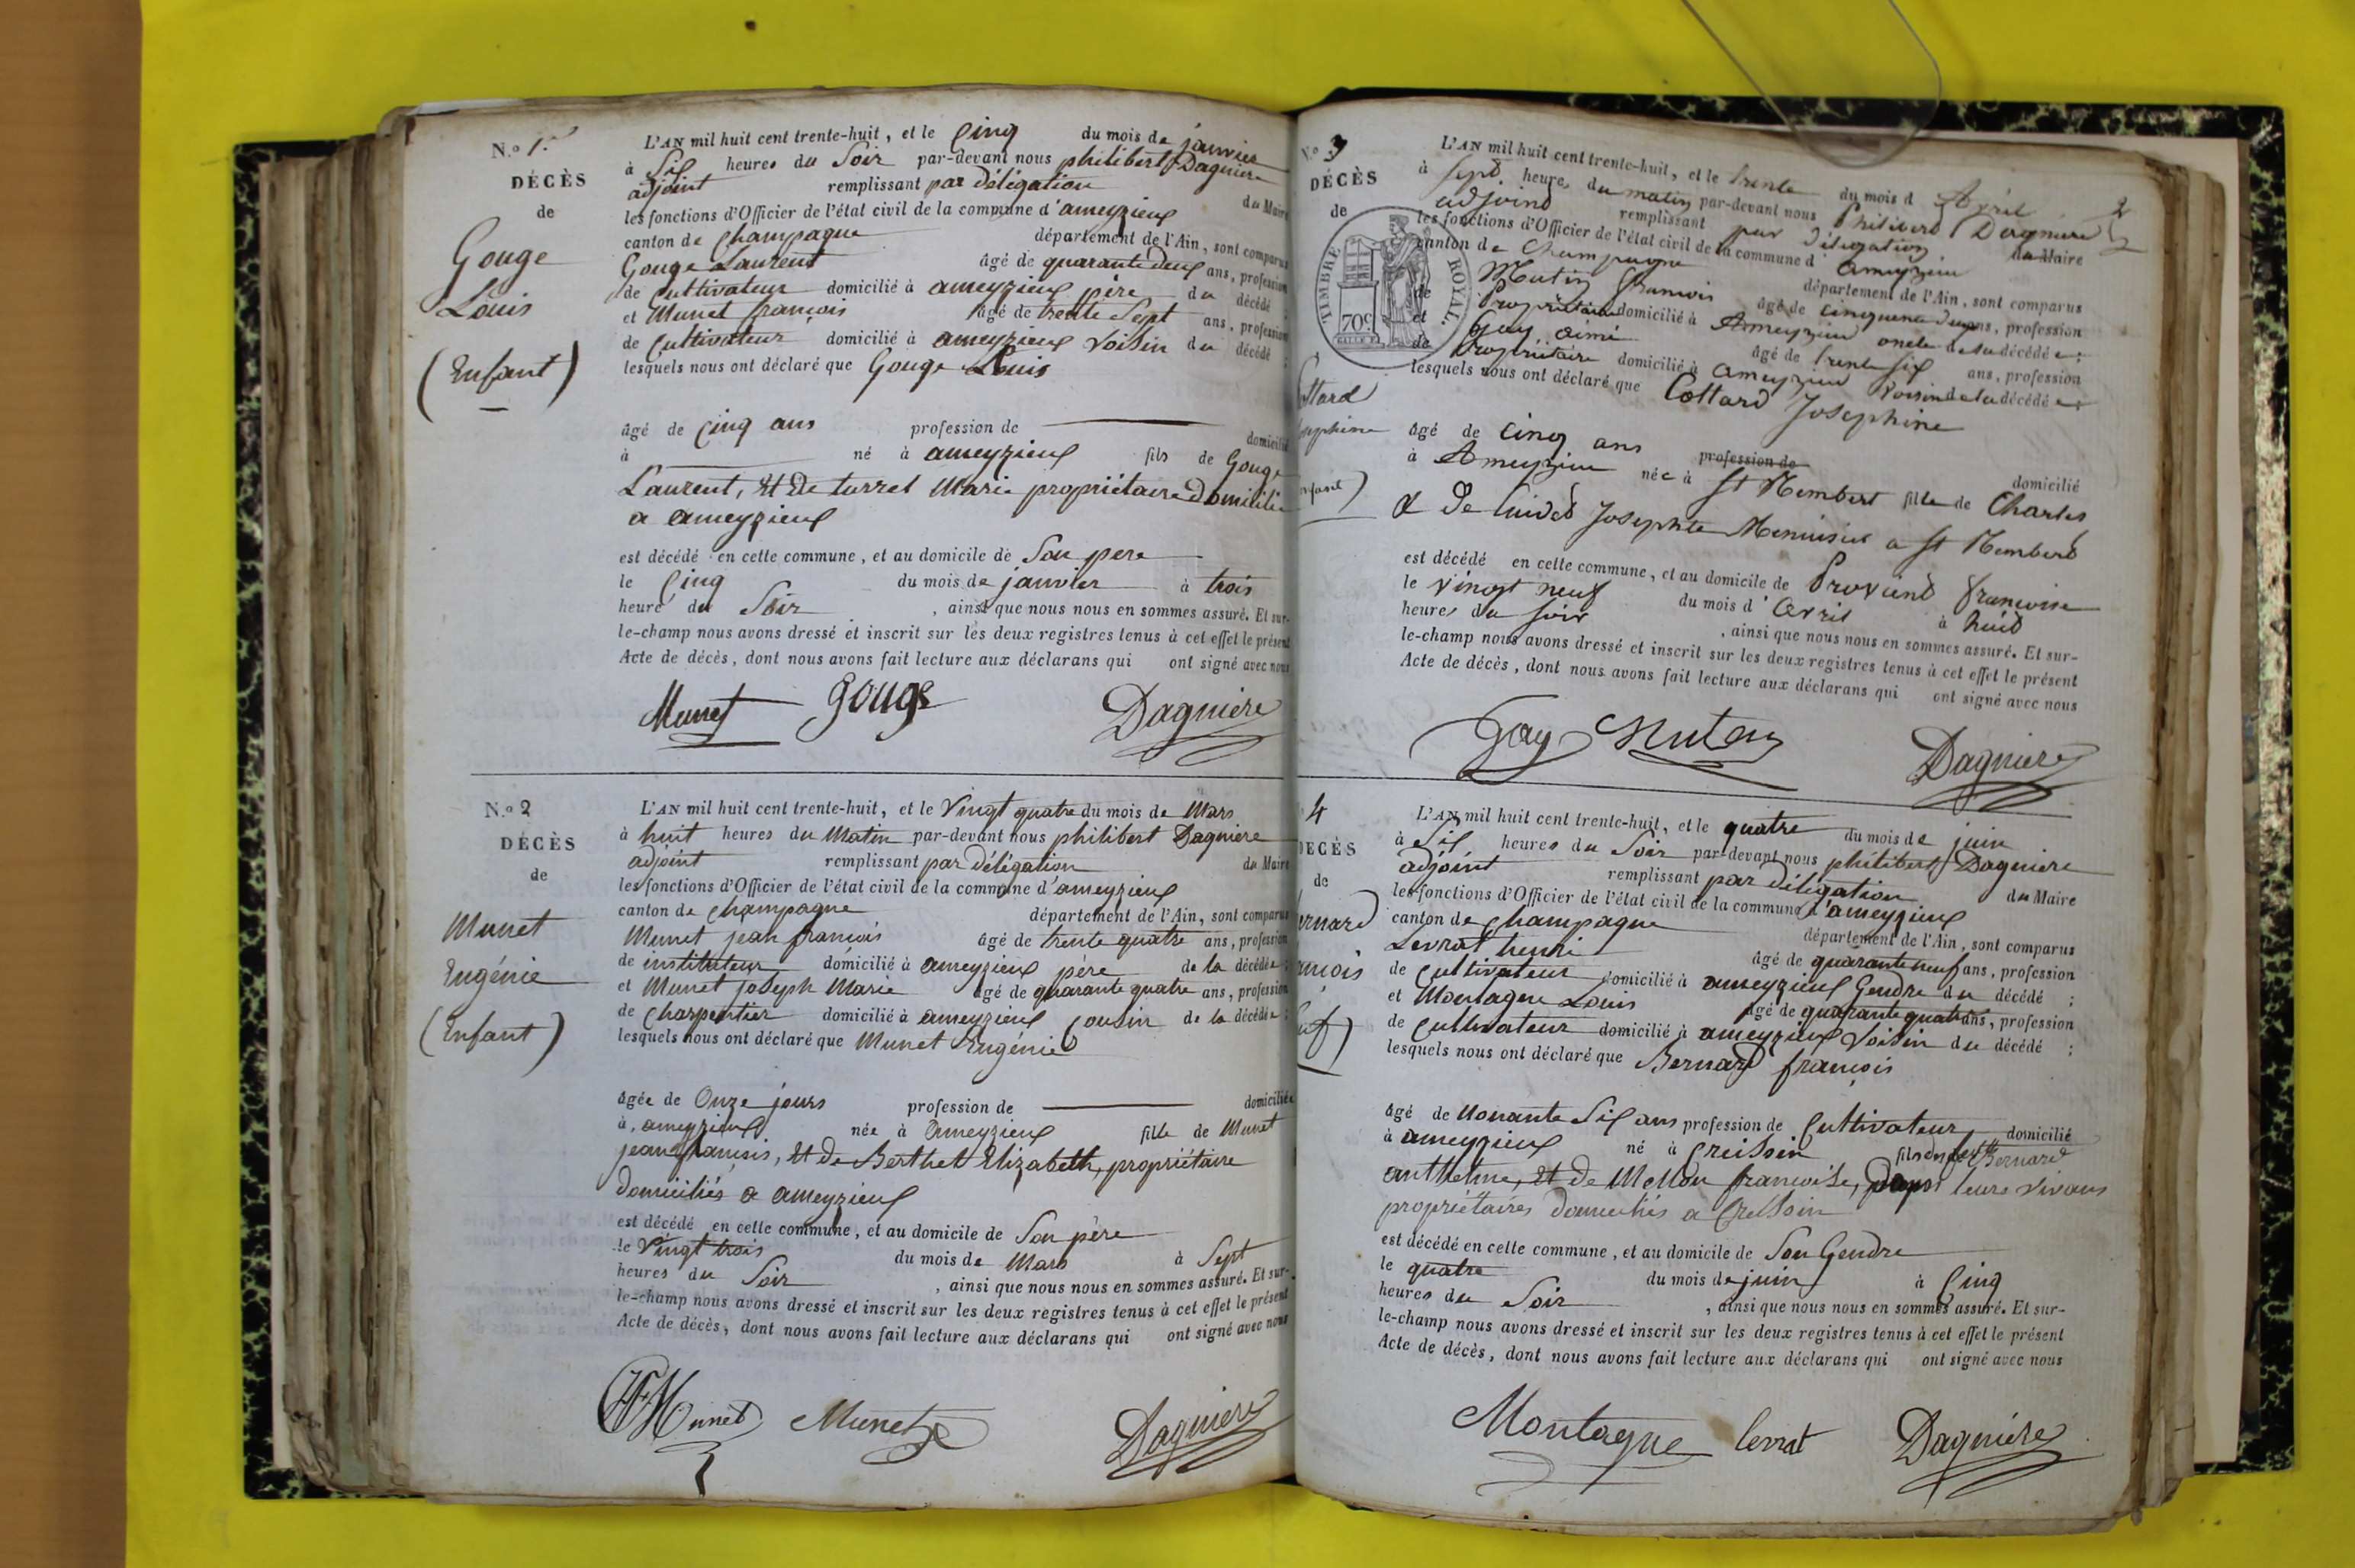 N.o 1.er
DÉCÈS
de
Gouge
Louis
(Enfant)
L'AN mil huit cent trente-huit, et le Cinq du mois de janvier
à Six heures du Soir par-devant nous philibert Dagniere
adjoint remplissant par délégation du Maire
les fonctions d'Officier de l'état civil de la commune d'ameyzieux
canton de Champagne département de l'Ain, sont comparus
Gouge Laurent âgé de quarante deux ans, profession
de Cultivateur domicilié à ameyzieux père du décédé
et Munet françois âgé de trente Sept ans, profession
de Cultivateur domicilié à ameyzieux Voisin du décédé ;
lesquels nous ont déclaré que Gouge Louis
âgé de Cinq ans profession de domicilié
à né à ameyzieux fils de Gouge
Laurent, Et de turrel Marie propriétaire Domicilié
a ameyzieux
est décédé en cette commune, et au domicile de Son pere
le Cinq du mois de janvier à trois
heure du Soir, ainsi que nous nous en sommes assuré. Et sur-
le-champ nous avons dressé et inscrit sur les deux registres tenus à cet effet le présent
Acte de décès, dont nous avons fait lecture aux déclarans qui ont signé avec nous
Munet Gouge Dagniere
N.o 2
DÉCÈS
de
Munet
Eugénie
(Enfant)
L'AN mil huit cent trente-huit, et le Vingt quatre du mois de Mars
à huit heures du Matin par-devant nous philibert Dagniere
adjoint remplissant par délégation du Maire
les fonctions d'Officier de l'état civil de la commune d'ameyzieux
canton de Champagne département de l'Ain, sont comparus
Munet jean françois âgé de trente quatre ans, profession
de instituteur domicilié à ameyzieux père de la décédée ;
et Munet joseph Marie âgé de quarante quatre ans, profession
de Charpentier domicilié à ameyzieux Cousin de la décédée ;
lesquels nous ont déclaré que Munet Eugénie
âgée de Onze jours profession de domiciliée
à ameyzieux née à Ameyzieux fille de Munet
jean françois, Et de Berthet Elizabeth, propriétaire
domiciliés a ameyzieux
est décédé en cette commune, et au domicile de Son père
le Vingt trois du mois de Mars à Sept
heures du Soir, ainsi que nous nous en sommes assuré. Et sur-
le-champ nous avons dressé et inscrit sur les deux registres tenus à cet effet le présent
Acte de décès, dont nous avons fait lecture aux déclarans qui ont signé avec nous
JFMunet Munet Dagniere
N.o 3
DÉCÈS
de
TIMBRE ROYAL.
70c
ottard
osephine
nfant)
2
L'AN mil huit cent trente-huit, et le trente du mois d Avril
à Sept heures du matin par-devant nous Philibert Dagniere
adjoint remplissant par délégation du Maire
les fonctions d'Officier de l'état civil de la commune d' Ameyzieu
canton de Champagne département de l'Ain, sont comparus
Mutin francois âgé de cinquante deux ans, profession
de Propriétaire domicilié à Ameyzieu oncle de la décédée ;
et Gay aimé âgé de trente six ans, profession
de Propriétaire domicilié à Ameyzieu Voisin de la décédée ;
lesquels nous ont déclaré que Cottard Josephine
âgé de Cinq ans profession de domicilié
à Ameyzieu née à St Rembert fille de Charles
& de Josephte Menuisier a St Rembert
est décédé en cette commune, et au domicile de francoise
le Vingt neuf du mois d' Avril à huit
heures du soir, ainsi que nous nous en sommes assuré. Et sur-
le-champ nous avons dressé et inscrit sur les deux registres tenus à cet effet le présent
Acte de décès, dont nous avons fait lecture aux déclarans qui ont signé avec nous
Gay Mutin Dagniere
4
DÉCÈS
de
ernard
ançois
uf)
L'AN mil huit cent trente-huit, et le quatre du mois de juin
à Six heures du Soir par-devant nous philibert Dagniere
adjoint remplissant par délégation du Maire
les fonctions d'Officier de l'état civil de la commune d'ameyzieux
canton de Champagne département de l'Ain, sont comparus
Levrat henri âgé de quarante neuf ans, profession
de Cultivateur domicilié à ameyzieux Gendre du décédé ;
et Montagne Louis âgé de quarante quatre ans, profession
de Cultivateur domicilié à ameyzieux Voisin du décédé ;
lesquels nous ont déclaré que Bernard françois
âgé de Nonante Six ans profession de Cultivateur domicilié
à ameyzieux né à Cressoin fils de Bernard
anthelme, Et de Mollon françoise, leurs vivans
propriétaires domiciliés a Cressoin
est décédé en cette commune, et au domicile de Son Gendre
le quatre du mois de juin à Cinq
heures du Soir, ainsi que nous nous en sommes assuré. Et sur-
le-champ nous avons dressé et inscrit sur les deux registres tenus à cet effet le présent
Acte de décès, dont nous avons fait lecture aux déclarans qui ont signé avec nous
Montagne levrat Dagniére